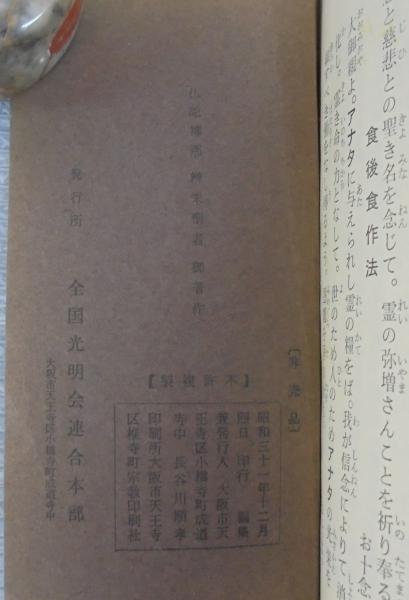 慈悲との聖き名を念じて。霊の弥増さんことを祈り奉る
お十念
食後食作法
大御親よ。アナタに与えられし霊の糧をば。我が信念によりて消
化し。霊き命の力となして。世のため人のためアナタの
〔非売品〕
仏陀禅那 辨栄聖者 御著作
【不許複製】
昭和三十一年十二月
印行 編集
兼発行人 大阪市天
王寺区小橋寺町成道
寺中 長谷川順孝
印刷所大阪市天王寺
区椎寺町宗教印刷社
発行所 全国光明会連合本部
大阪市天王寺区小橋寺町成道寺中